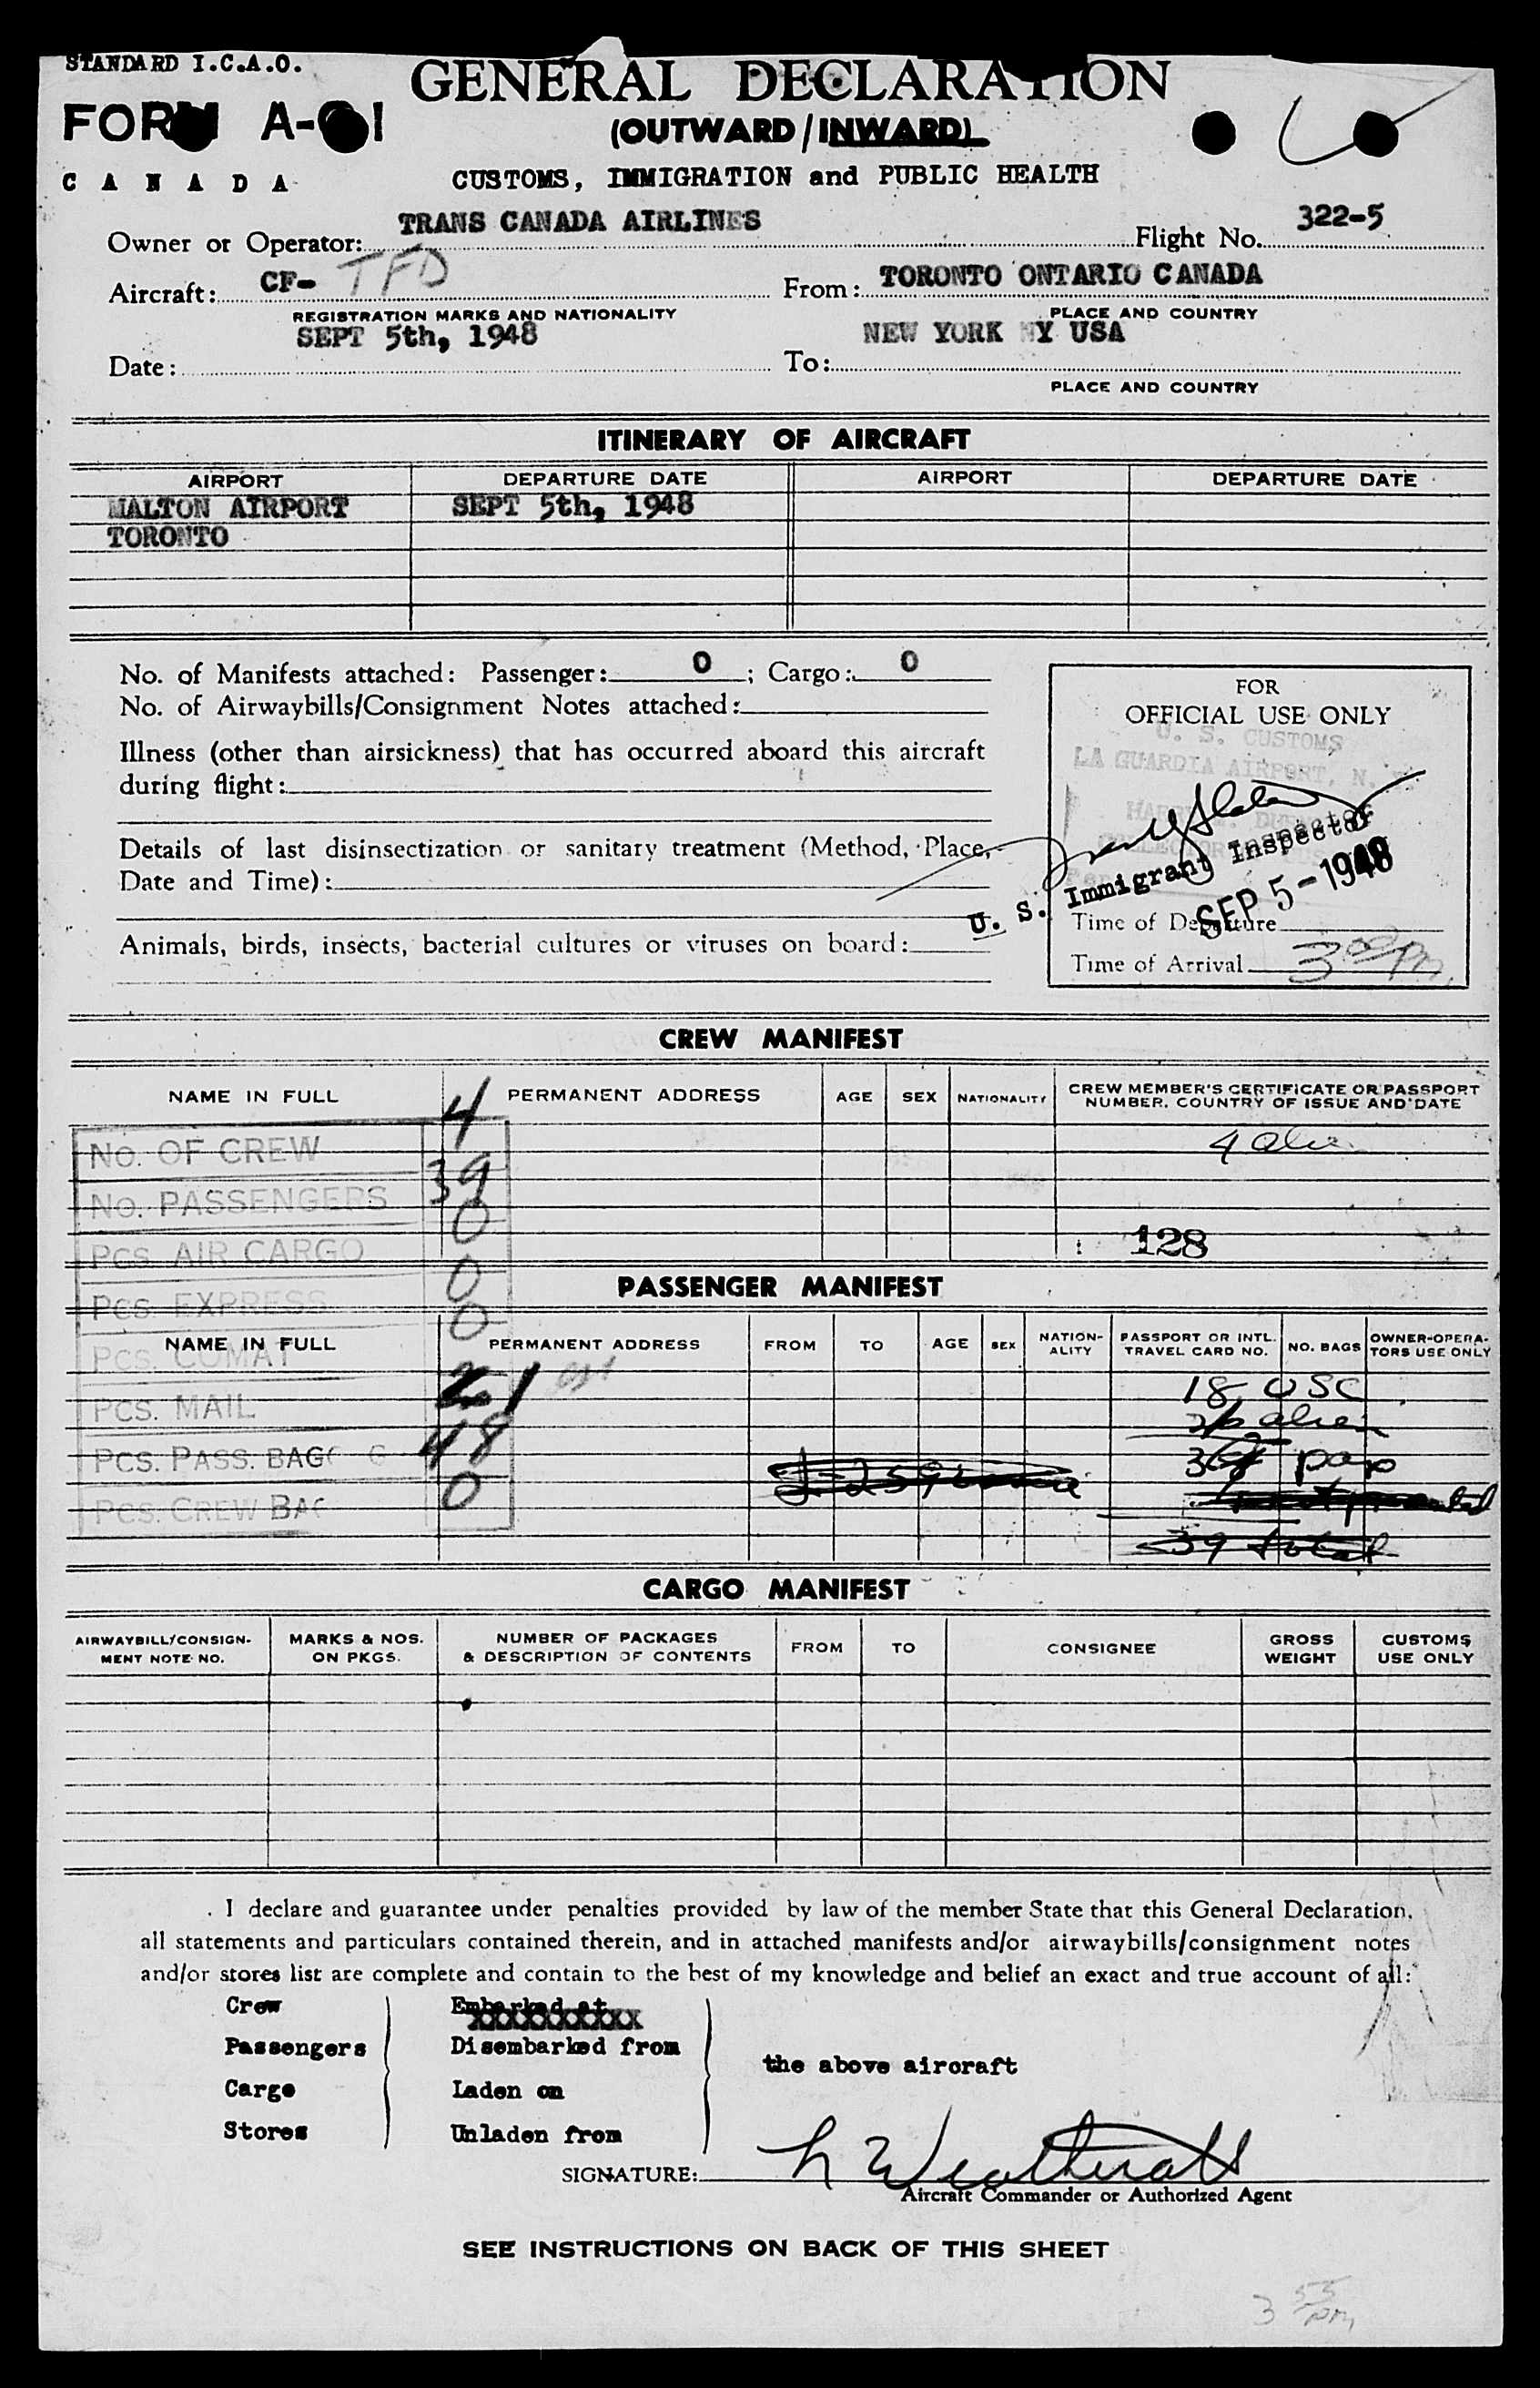 STANDARD I.C.A.O.
GENERAL DECLARATION
FORM A-01
(OUTWARD/INWARD)
CANADA
CUSTOMS, IMMIGRATION and PUBLIC HEALTH
Owner or Operator: TRANS CANADA AIRLINES Flight No. 322-5
Aircraft: CF- TFD From: TORONTO ONTARIO CANADA
REGISTRATION MARKS AND NATIONALITY PLACE AND COUNTRY
SEPT 5th, 1948 NEW YORK NY USA
Date: To:
PLACE AND COUNTRY
ITINERARY OF AIRCRAFT
AIRPORT DEPARTURE DATE AIRPORT DEPARTURE DATE
MALTON AIRPORT SEPT 5th, 1948
TORONTO
No. of Manifests attached: Passenger: 0 ; Cargo: 0
No. of Airwaybills/Consignment Notes attached:
Illness (other than airsickness) that has occurred aboard this aircraft
during flight:
Details of last disinsectization or sanitary treatment (Method, Place,
Date and Time):
Animals, birds, insects, bacterial cultures or viruses on board:
FOR
OFFICIAL USE ONLY
U. S. CUSTOMS
LA GUARDIA AIRPORT, N.
U. S. Immigrant Inspector
SEP 5-1948
Time of Departure
Time of Arrival 3 00 PM
CREW MANIFEST
NAME IN FULL PERMANENT ADDRESS AGE SEX NATIONALITY CREW MEMBER'S CERTIFICATE OR PASSPORT
NUMBER, COUNTRY OF ISSUE AND DATE
No. OF CREW 4
4 alien
No. PASSENGERS 39
Pcs. AIR CARGO 0
128
Pcs. EXPRESS 0
PASSENGER MANIFEST
NAME IN FULL PERMANENT ADDRESS FROM TO AGE SEX NATION-
ALITY PASSPORT OR INTL.
TRAVEL CARD NO. NO. BAGS OWNER-OPERA-
TORS USE ONLY
Pcs. COMAT 0
18 USC
Pcs. MAIL 21
alien
Pcs. PASS. BAG 48
pax
Pcs. CREW BAG 0
39 total
CARGO MANIFEST
AIRWAYBILL/CONSIGN-
MENT NOTE NO. MARKS & NOS.
ON PKGS. NUMBER OF PACKAGES
& DESCRIPTION OF CONTENTS FROM TO CONSIGNEE GROSS
WEIGHT CUSTOMS
USE ONLY
I declare and guarantee under penalties provided by law of the member State that this General Declaration,
all statements and particulars contained therein, and in attached manifests and/or airwaybills/consignment notes
and/or stores list are complete and contain to the best of my knowledge and belief an exact and true account of all:
Crew Embarked at
Passengers Disembarked from
the above aircraft
Cargo Laden on
Stores Unladen from
SIGNATURE:
Aircraft Commander or Authorized Agent
SEE INSTRUCTIONS ON BACK OF THIS SHEET
3 55 pm